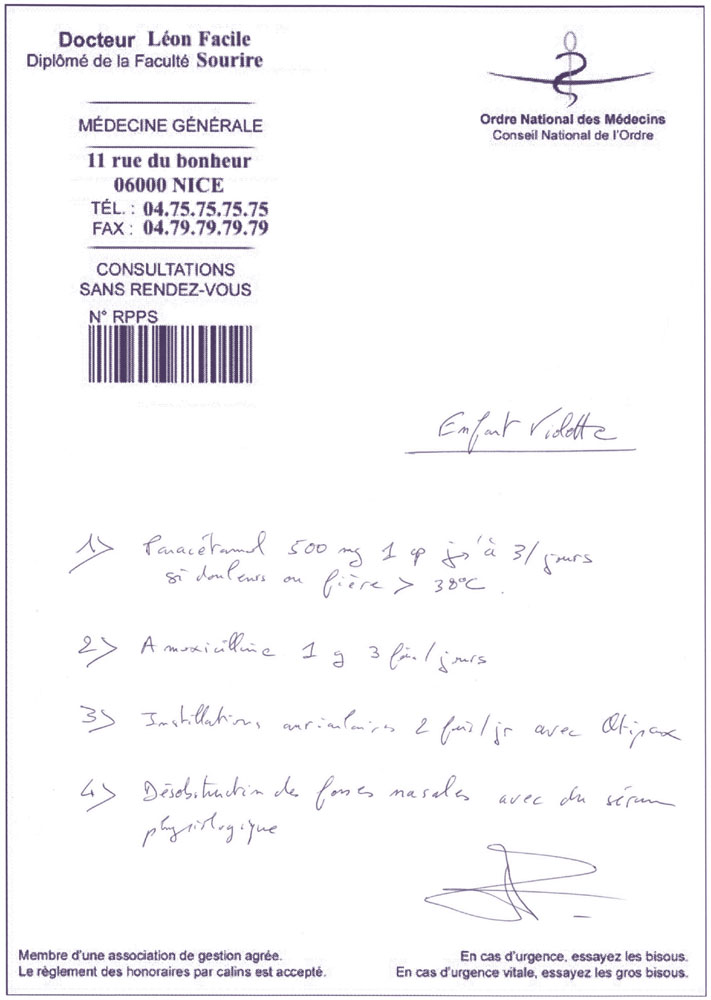 Docteur Léon Facile
Diplômé de la Faculté Sourire
MÉDECINE GÉNÉRALE
11 rue du bonheur
06000 NICE
TÉL. : 04.75.75.75.75
FAX : 04.79.79.79.79
CONSULTATIONS
SANS RENDEZ-VOUS
N° RPPS
Ordre National des Médecins
Conseil National de l'Ordre
Enfant Violette
1) Paracétamol 500 mg 1 cp jsq'à 3/jours
si douleurs ou fièvre > 38°C.
2) Amoxicilline 1 g 3 fois/jours
3) Instillations auriculaires 2 fois/jr avec Otipax
4) Désobstruction des fosses nasales avec du sérum
physiologique
Membre d'une association de gestion agrée.
Le règlement des honoraires par calins est accepté.
En cas d'urgence, essayez les bisous.
En cas d'urgence vitale, essayez les gros bisous.